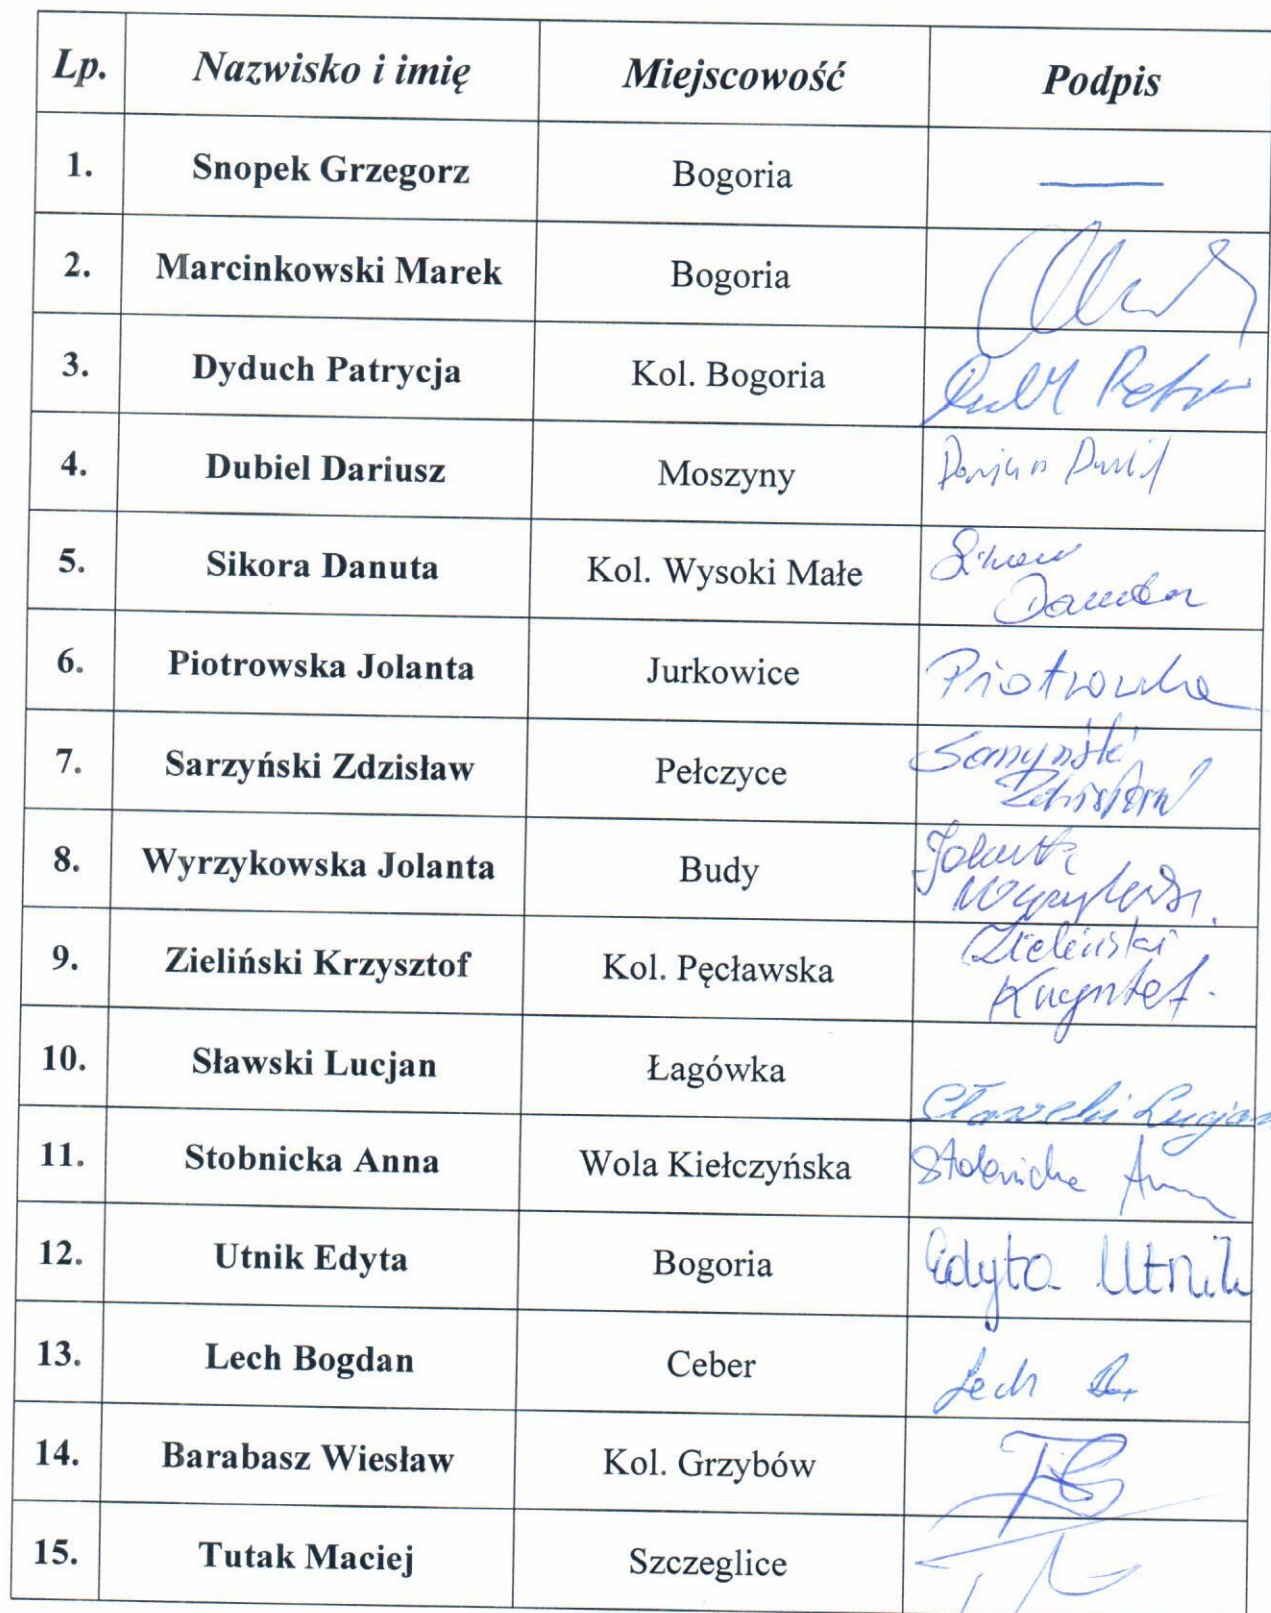 Lp. Nazwisko i imię Miejscowość Podpis
1. Snopek Grzegorz Bogoria —
2. Marcinkowski Marek Bogoria
3. Dyduch Patrycja Kol. Bogoria
4. Dubiel Dariusz Moszyny
5. Sikora Danuta Kol. Wysoki Małe
6. Piotrowska Jolanta Jurkowice Piotrowska
7. Sarzyński Zdzisław Pełczyce Sarzyński
Zdzisław
8. Wyrzykowska Jolanta Budy Jolanta
9. Zieliński Krzysztof Kol. Pęcławska Zieliński
Krzysztof
10. Sławski Lucjan Łagówka Sławski Lucjan
11. Stobnicka Anna Wola Kiełczyńska Stobnicka Anna
12. Utnik Edyta Bogoria Edyta Utnik
13. Lech Bogdan Ceber Lech
14. Barabasz Wiesław Kol. Grzybów
15. Tutak Maciej Szczeglice